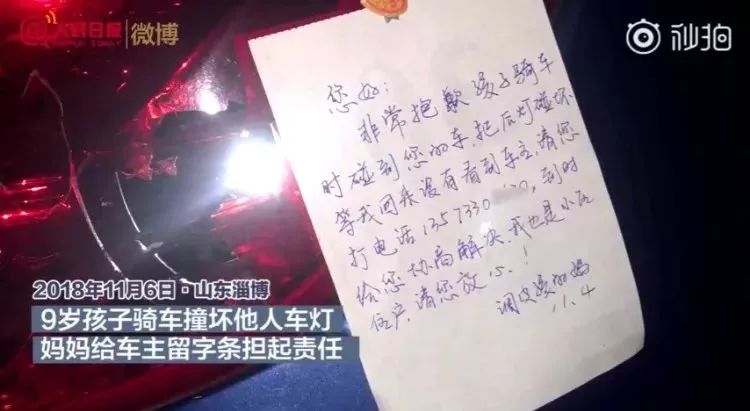 人民日报 微博
秒拍
您好:
非常抱歉孩子骑车
时碰到您的车,把后灯碰坏
等我回来没有看到车主,请您
打电话1357330 ,到时
给您协商解决,我也是小区
住户,请您放心!
调皮孩的妈
11.4
2018年11月6日·山东淄博
9岁孩子骑车撞坏他人车灯
妈妈给车主留字条担起责任